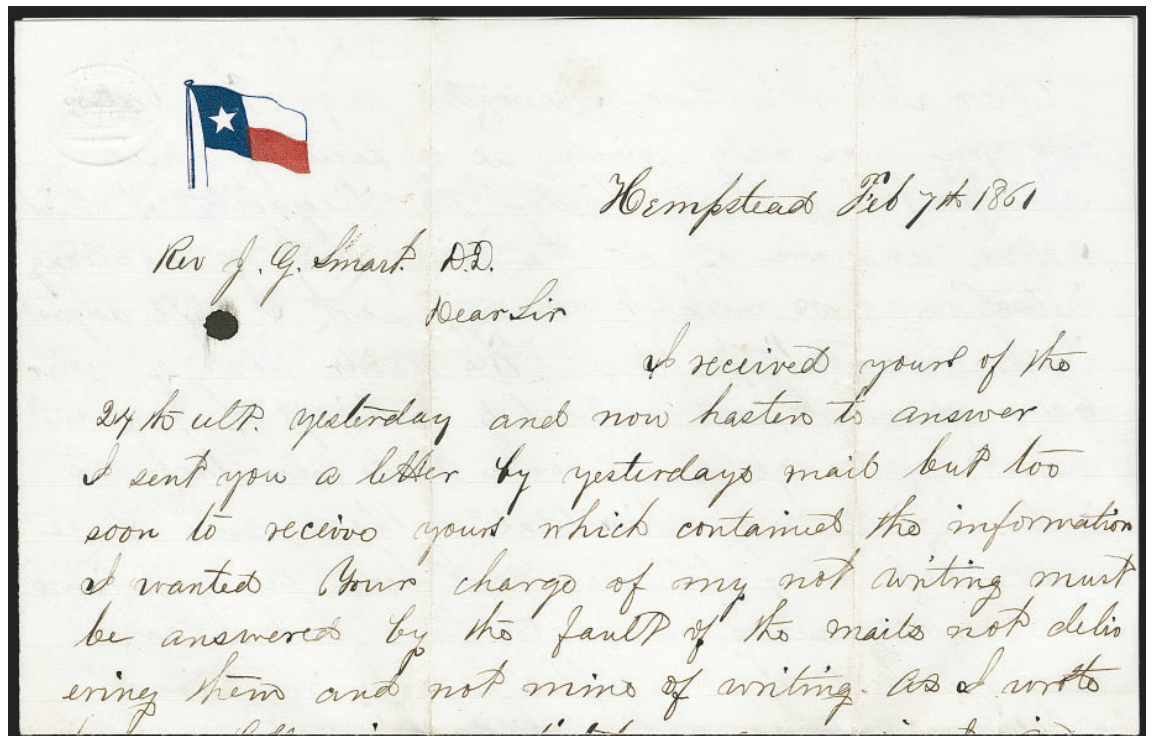 Hempstead Feb 7th 1861
Rev J. G. Smart. D.D.
Dear Sir
I received yours of the
24th ult. yesterday and now hasten to answer
I sent you a letter by yesterdays mail but too
soon to receive yours which contained the information
I wanted Your charge of my not writing must
be answered by the fault of the mails not deliv
ering them and not mine of writing. As I wrote